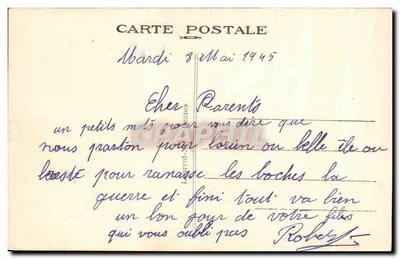 CARTE POSTALE
Mardi 8 Mai 1945
Cher Parents
un petits mots pour vous dire que
nous parton pour lorien ou belle île ou
pour ramasse les boches la
guerre et fini tout va bien
un bon jour de votre fils
qui vous oubli pas Robert